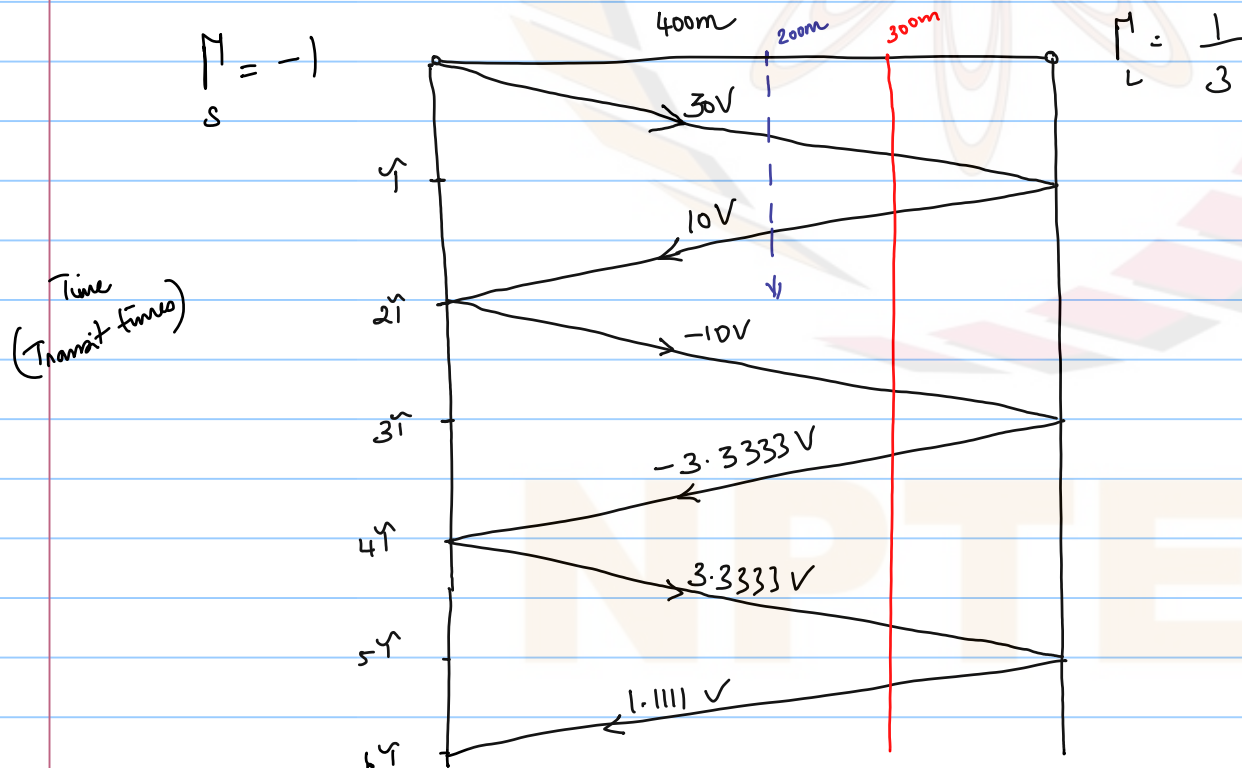 400m
200m
300m
Γ_S = -1
Γ_L = 1/3
30V
T
10V
Time
(Transit times)
2T
-10V
3T
-3.3333V
4T
3.3333V
5T
1.1111 V
6T
NPTE